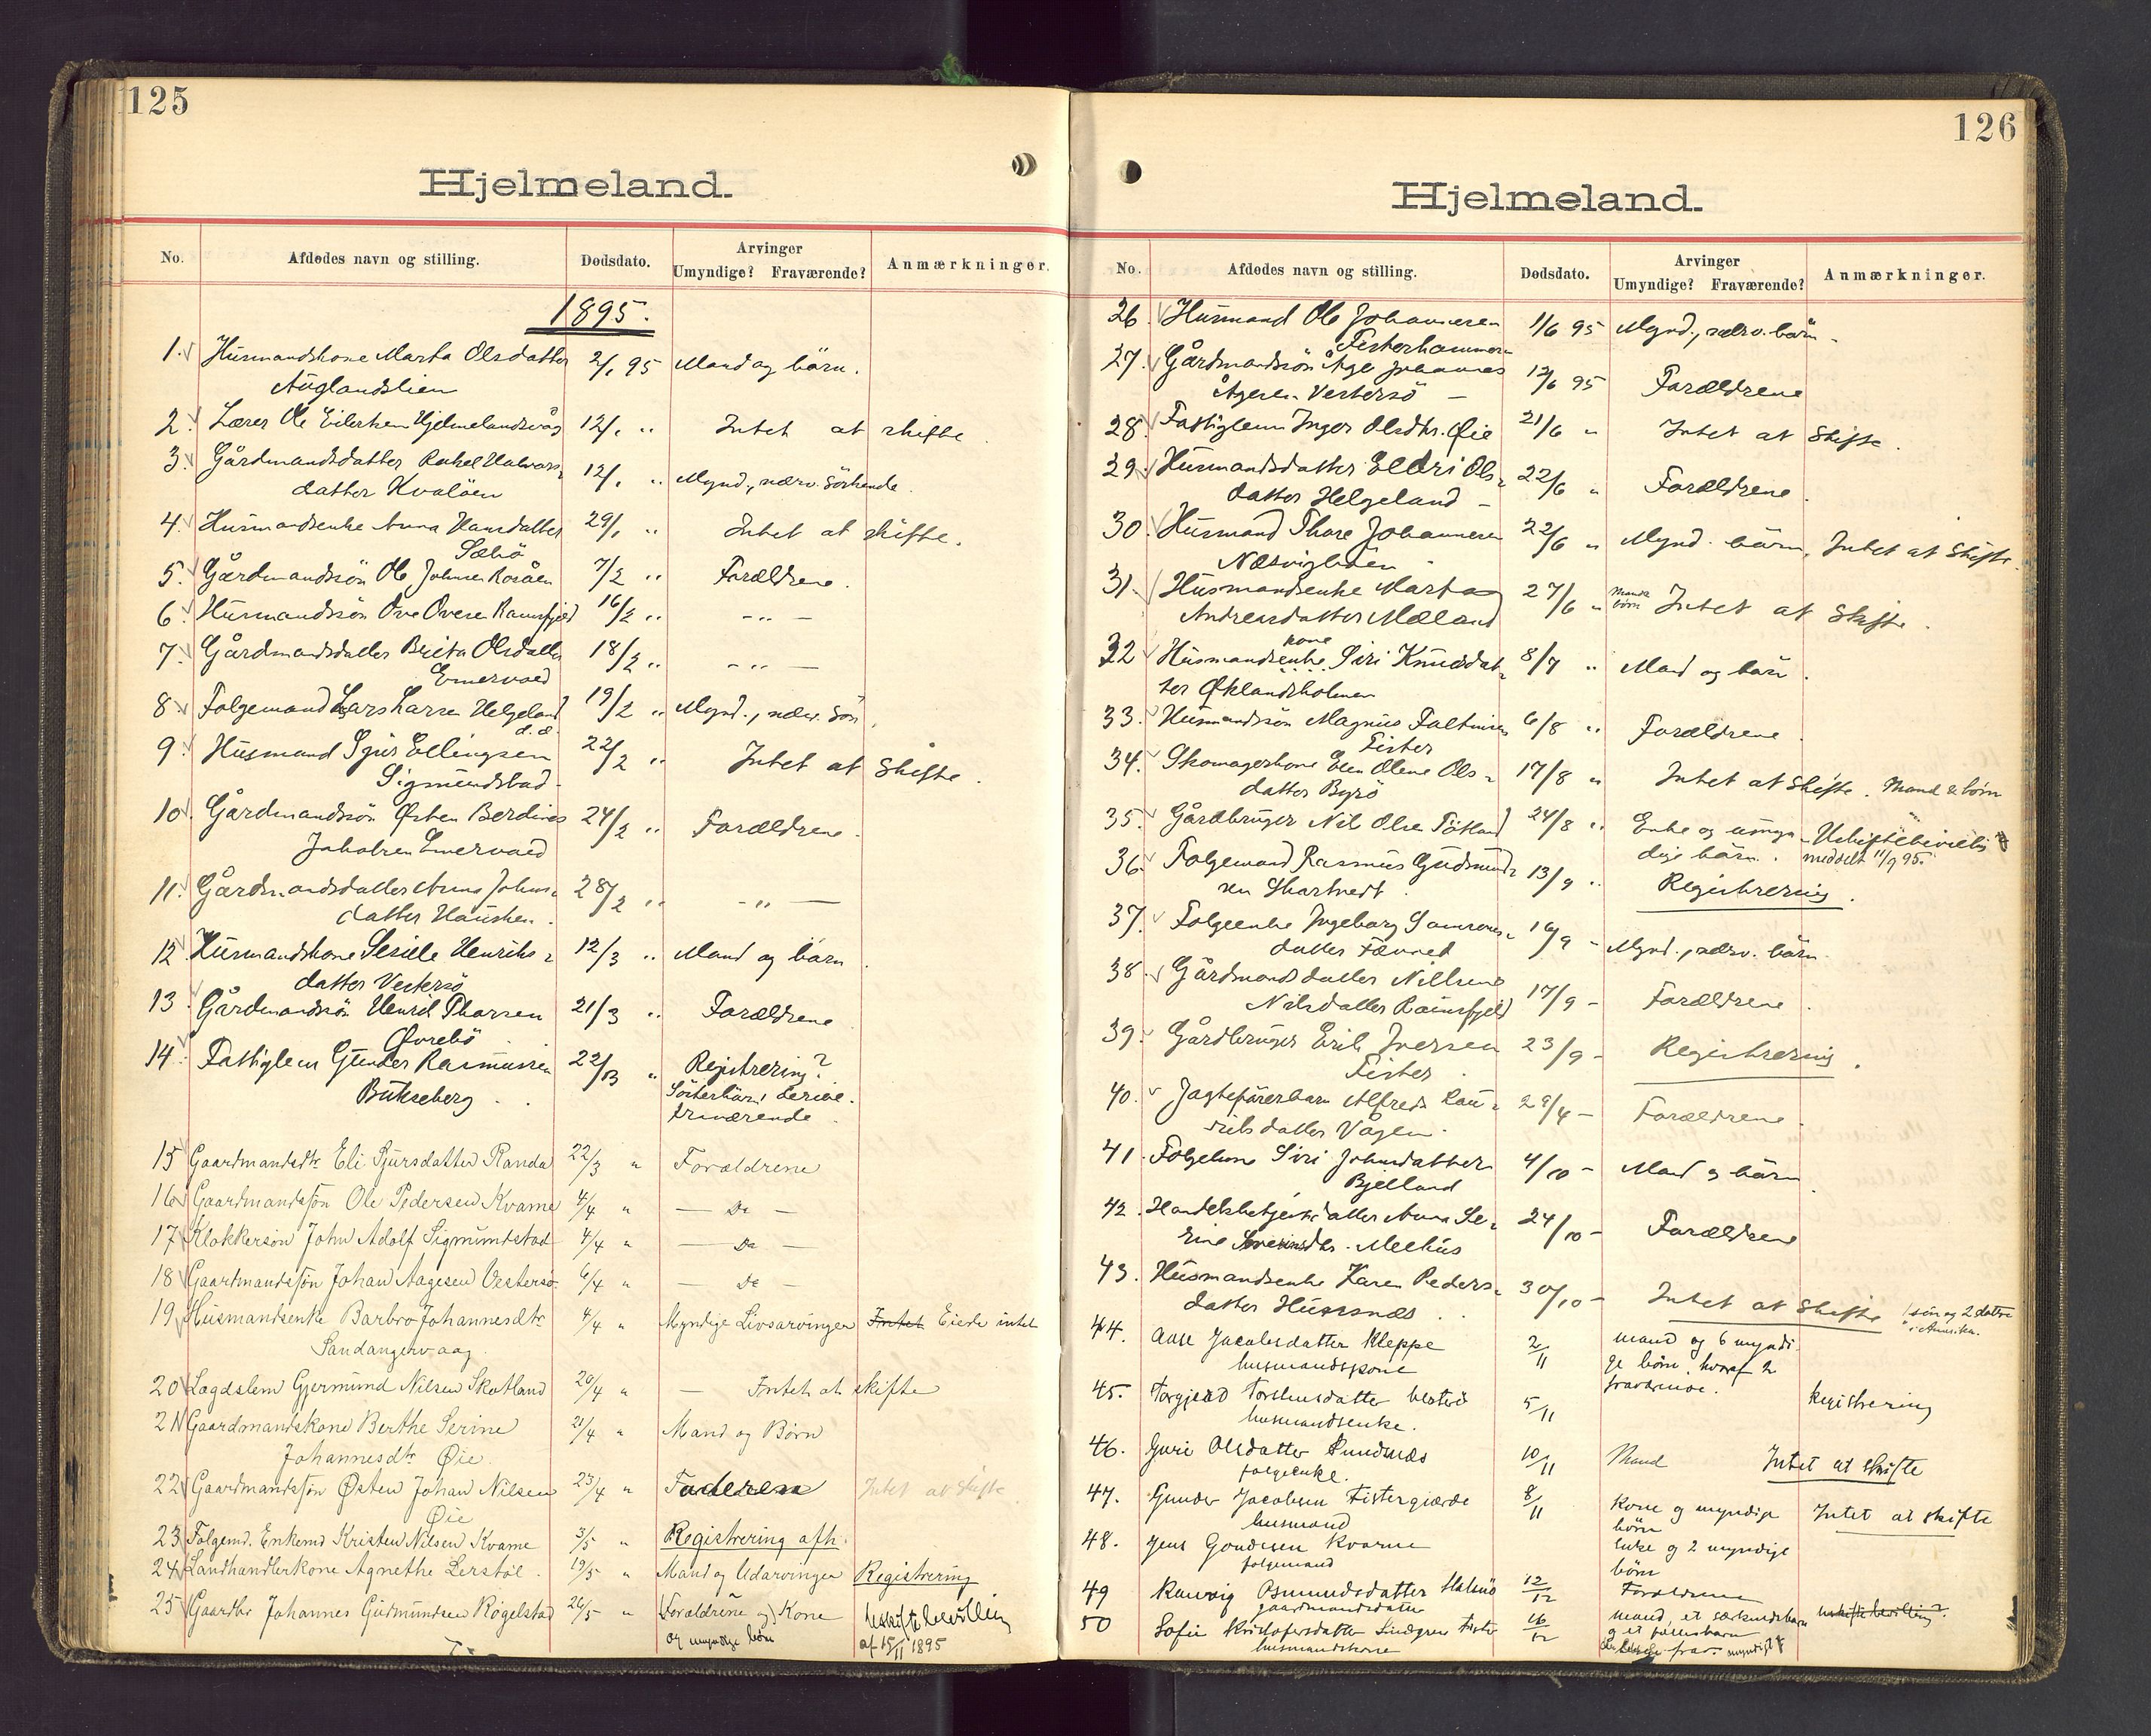 125
Hjelmeland.
No. Afdødes navn og stilling. Dødsdato. Arvinger Umyndige? Fraværende? Anmærkninger.
1895.
1. Husmandskone Marta Olsdatter 2/1 95 Mand og børn.
Auglandslien
2. Lærer Ole Eilertsen Hjelmelandsvåg 12/1 " Intet at skifte.
3. Gårdmandsdatter Rakel Halvors- 12/1 " Mynd., nærv. søskende.
datter Kvaløen
4. Husmandsenke Anna Hansdatter 29/1 " Intet at skifte.
Sæbø
5. Gårdmandssøn Ole Johnsen Rosåen 7/2 " Forældrene.
6. Husmandssøn Ove Ovesen Ramsfjeld 16/2 " - " -
7. Gårdmandsdatter Brita Olsdatter 18/2 " - " -
Emervoed
8. Folgemand Lars Larsen Helgeland 19/2 " Mynd., nærv. søn.
d.æ.
9. Husmand Sjur Ellingsen 22/2 " Intet at skifte.
Sigmundstad
10. Gårdmandssøn Østen Berdines 24/2 " Forældrene.
Jakobsen Emervoed
11. Gårdmandsdatter Anna Johns- 28/2 " - " -
datter Hausken.
12. Husmandskone Serine Henriks- 12/3 " Mand og børn.
datter Vestersø
13. Gårdmandssøn Henrik Thorsen 21/3 " Forældrene
Øvrebø
14. Fattiglem Gunder Rasmussen 22/3 " Registrering?
Bukseberg. Søsterbørn,
fraværende.
15 Gaardmandsdtr Eli Sjursdatter Randa 22/3 " Forældrene
16 Gaardmandssøn Ole Pedersen Kvame 4/4 " — Do —
17 Klokkersøn John Adolf Sigmundstad 4/4 " — Do —
18 Gaardmandssøn Johan Aagesen Vestersø 6/4 " — Do —
19 Husmandsenke Barbro Johannesdtr 4/4 " Myndige Livsarvinger Intet Eiede intet
Sandangervaag.
20 Lægdslem Gjermund Nilsen Skotland 20/4 " — Intet at skifte
21 Gaardmandskone Berthe Serine 21/4 " Mand og Børn
Johannesdtr Øie.
22 Gaardmandssøn Østen Johan Nilsen 23/4 " Faderen Intet at skifte
Øie
23 Folgemd. Enkemd Kristen Nilsen Kvame 3/5 " Registrering afh.
24 Landhandlerkone Agnethe Lerstøl. 19/5 " Mand og Udarvinger Registrering
25 Gaardbr Johannes Gudmundsen Rogelstad 26/5 " (Forældrene og) Kone Uskiftebevilling
og myndige børn af 15/11 1895
126
Hjelmeland.
No. Afdødes navn og stilling. Dødsdato. Arvinger Umyndige? Fraværende? Anmærkninger.
26. Husmand Ole Johannesen 1/6 95 Mynd., nærv. børn.
Fisterhammeren
27. Gårdmandssøn Åge Johannes 12/6 95 Forældrene
Ågesen Vestersø —
28. Fattiglem Inger Olsdtr. Øie 21/6 " Intet at skifte.
29. Husmandsdatter Eldri Ols- 22/6 " Forældrene.
datter Helgeland —
30. Husmand Thore Johannesen 22/6 " Mynd. børn. Intet at skifte.
Næsvigbøen
31. Husmandsenke Marta 27/6 " Mand & børn Intet at skifte.
Andreasdatter Mæland
kone
32 Husmandsenke Siri Knudsdat- 8/7 " Mand og børn.
ter Øklandsholmen
33. Husmandssøn Magnus Faltinsen 6/8 " Forældrene.
Fister
34. Skomagerkone Elen Olene Ols- 17/8 " Intet at skifte. Mand & børn
datter Byrø
35. Gårdbruger Nils Olsen Tøtland 24/8 " Enke og umyn- Uskiftebevilling
dige børn. meddelt 11/9 95.
36. Folgemand Rasmus Gudmund- 13/9 " Registrering.
sen Skartvedt.
37. Folgeenke Ingeborg Samsons- 16/9 - Mynd., nærv. børn.
datter Tævred
38. Gårdmandsdatter Nilsine 17/9 - Forældrene.
Nilsdatter Ramsfjeld
39. Gårdbruger Erik Iversen 23/9 - Registrering.
Fister.
40. Jagtefører barn Alfreda Lau- 29/4 - Forældrene.
ritsdatter Vågen.
41. Folgekone Siri Johnsdatter 4/10 - Mand og børn.
Bjelland
42. Handelsbetjentsdatter Anna Se- 24/10 - Forældrene
rine Severinsdtr. Meehus
43. Husmandsenke Karen Peders- 30/10 - Intet at skifte 1 søn og 2 døtre
datter Husssnæs i Amerika.
44. Aase Jacobsdatter Kleppe 2/11 mand og 6 myndi-
husmandskone ge børn, hvoraf 2
fraværende.
45. Torgjerd Torstensdatter Vestersø 5/11 Registrering
husmandsenke.
46. Guri Olsdatter Sundsnæs 10/11 Mand Intet at skifte
folgeenke.
47. Gunder Jacobsen Fistergjærde 8/11 kone og myndige Intet at skifte
husmand børn
48. Jens Gondersen Kvame enke og 2 myndige
folgemand børn
49 Ranveig Osmundsdatter Halsnø 12/12 Forældrene
gaardmandsdatter
50 Sofie Kristofersdatter Lindgren Fister 16/12 mand, et særkuldsbarn Uskiftebevilling?
husmandskone og et fællesbarn